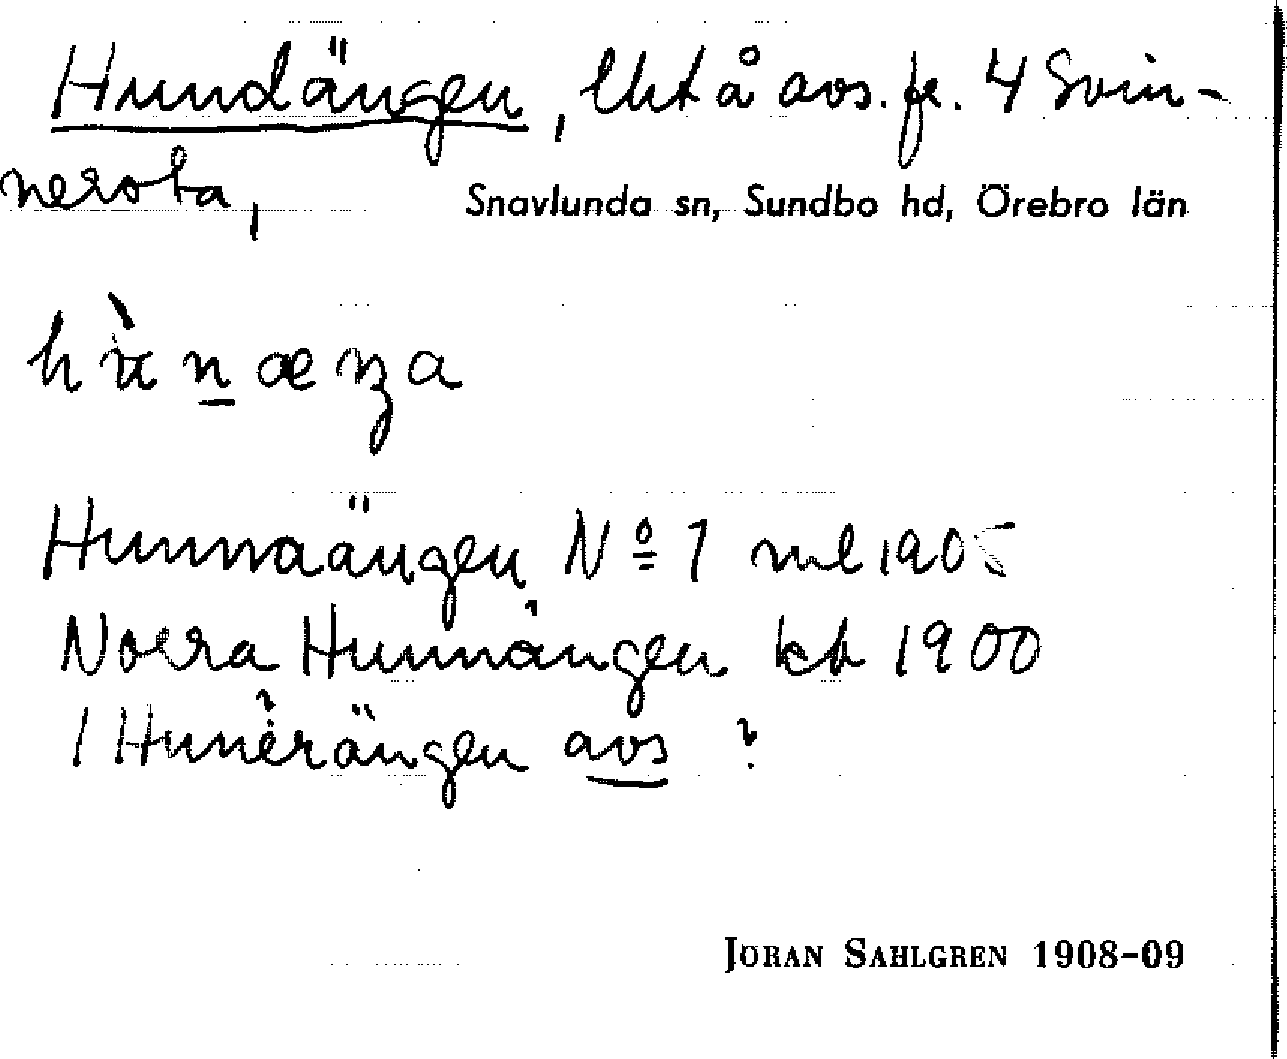 Hundängen, lht å avs. fr. 4 Svin-
nerota,
Snavlunda sn, Sundbo hd, Örebro län
Hunnaängen Nº 1 ml 1905
Norra Hunnängen kb 1900
1 Hunerängen avs ?
JÖRAN SAHLGREN 1908-09